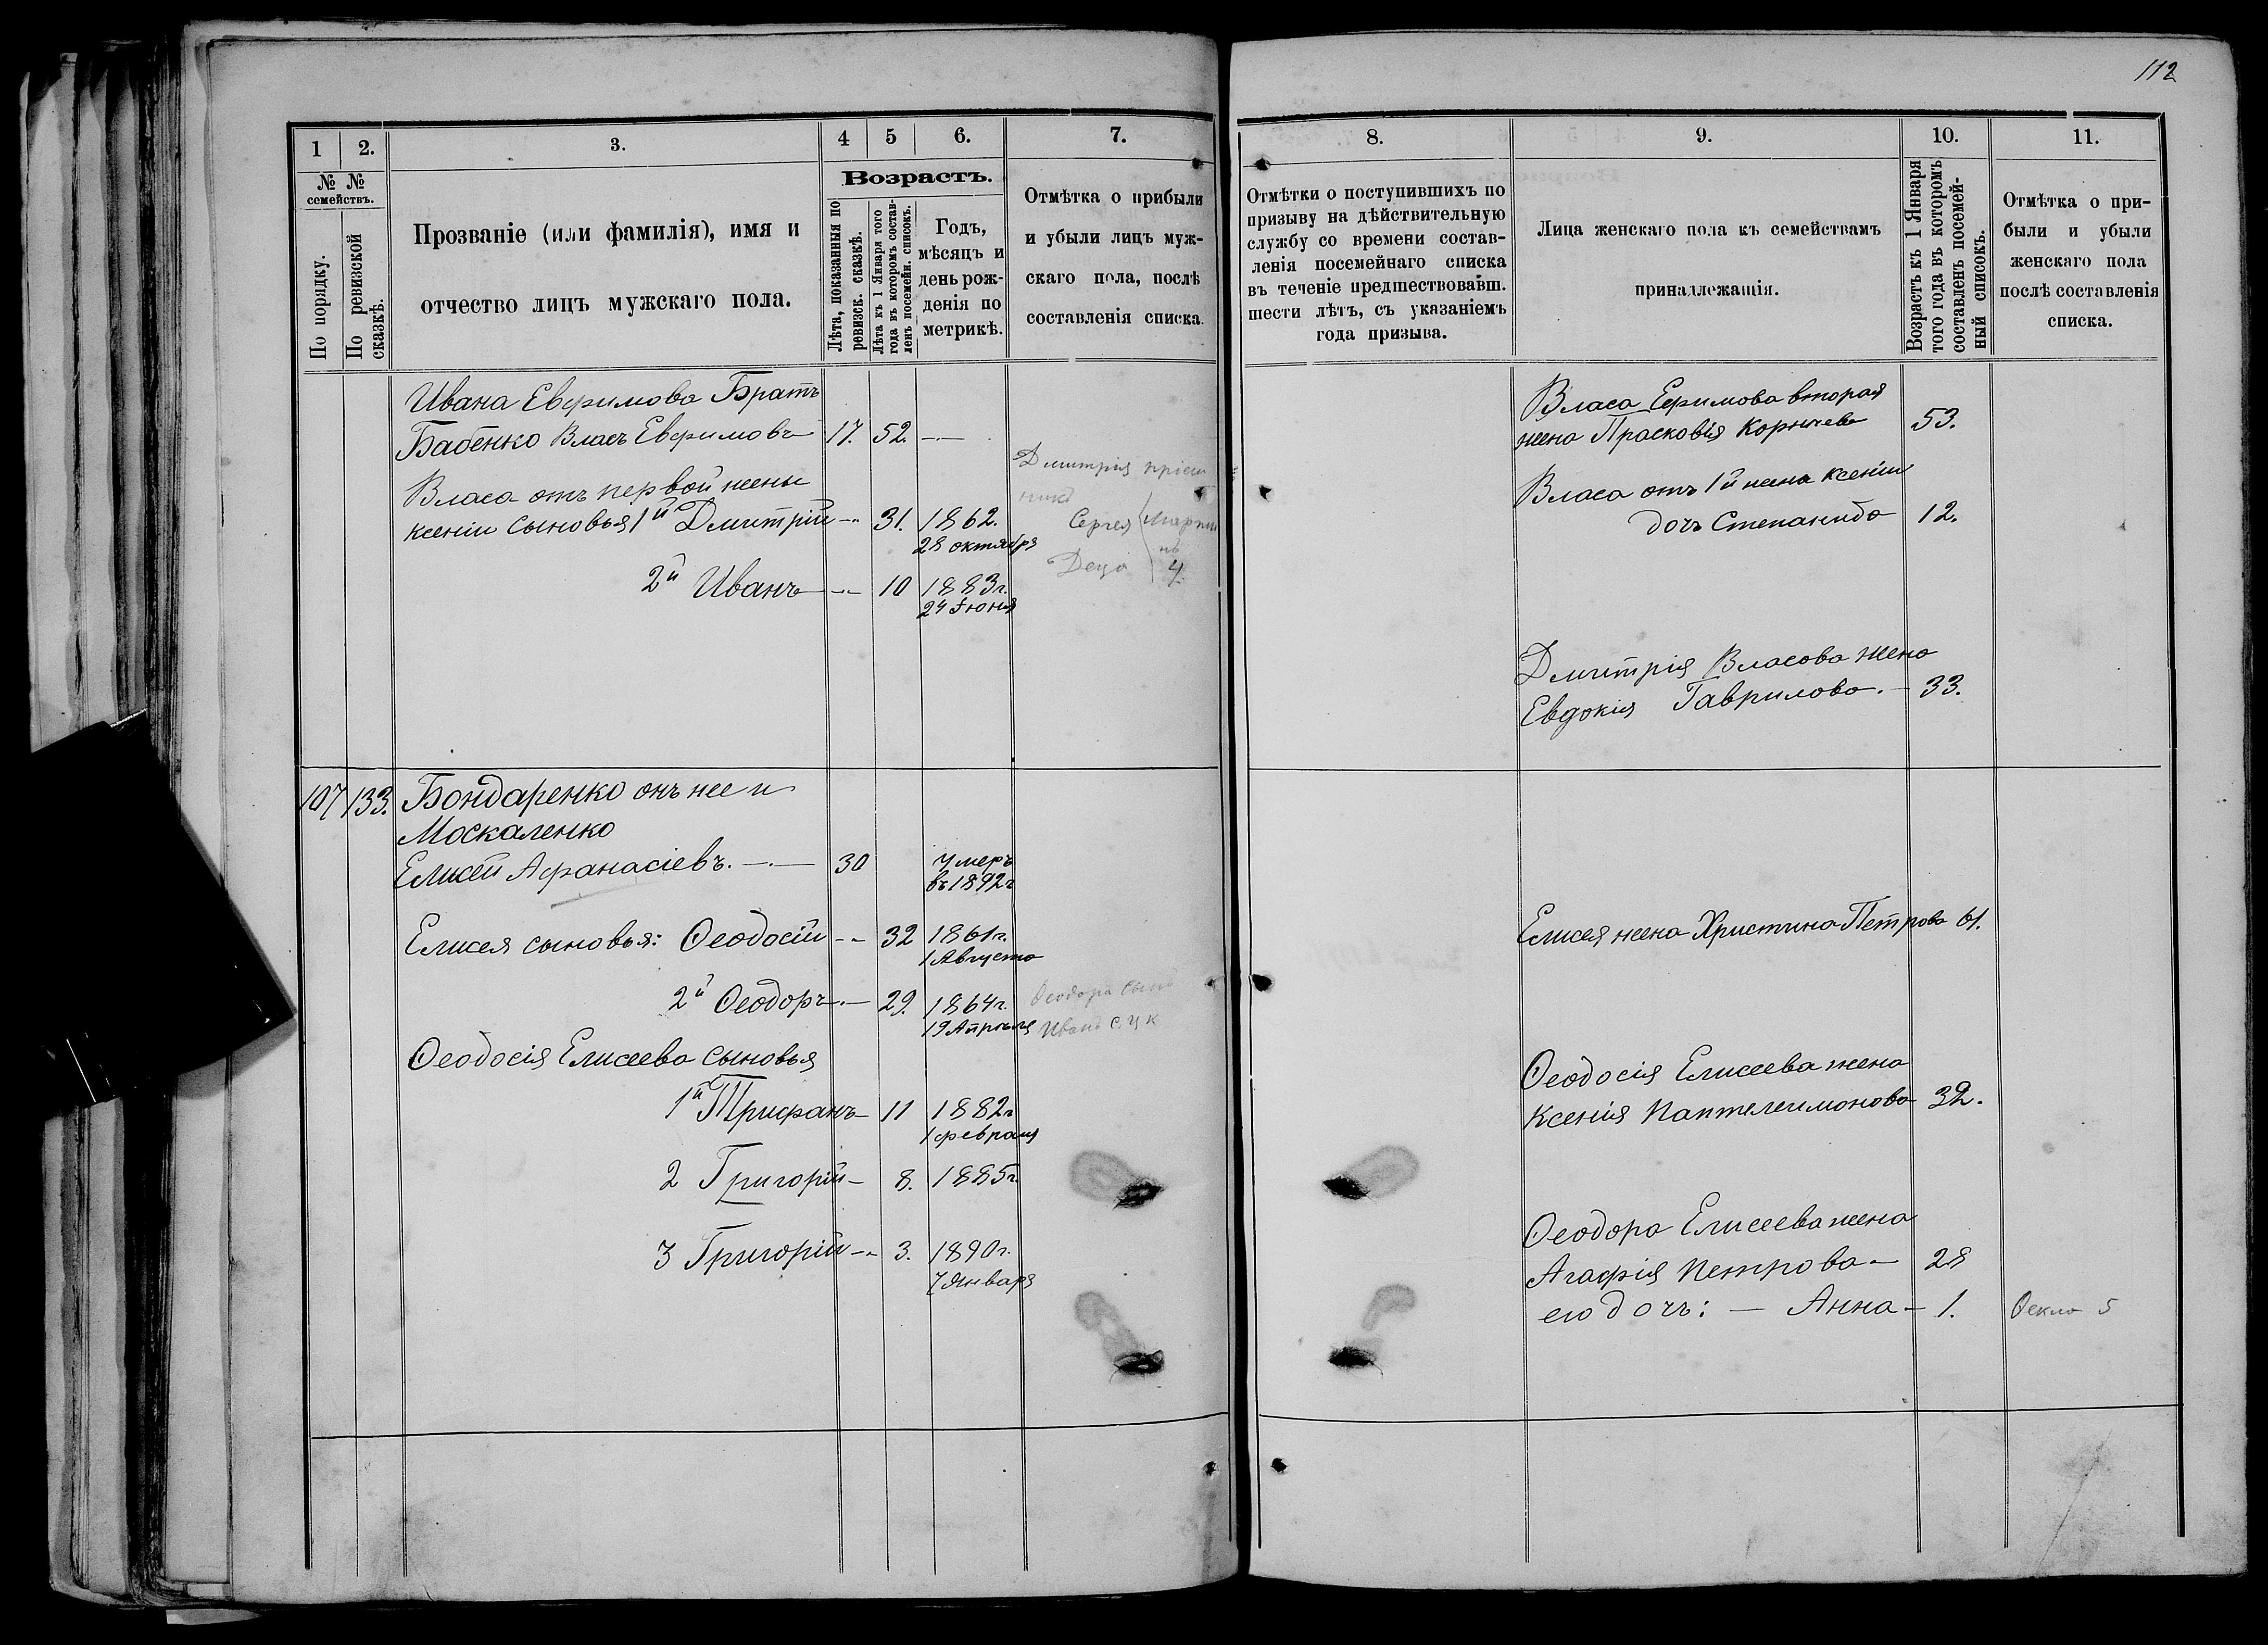 112
1
2.
3.
4
5
6.
7.
№ №
семействъ.
По порядку.
По ревизской
сказкѣ.
Прозваніе (или фамилія), имя и
отчество лицъ мужскаго пола.
Возрастъ.
Лѣта, показанныя по
ревизск. сказкѣ.
Лѣта къ 1 Января того
года въ которомъ состав-
ленъ посемейн. списокъ.
Годъ,
мѣсяцъ и
день рож-
денія по
метрикѣ.
Отмѣтка о прибыли
и убыли лицъ муж-
скаго пола, послѣ
составленія списка.
Ивана Евфимова Братъ
Бабенко Власъ Евфимовъ 17. 52.
Власа отъ первой жены
Ксеніи сыновья 1й Дмитрій 31. 1862.
28 октября
2й Иванъ 10 1883г.
24 Іюня
Дмитрія
Сергея
107 133. Бондаренко онъ же и
Москаленко
Елисей Афанасіевъ. 30 Умеръ
въ 1892г
Елисея сыновья: Ѳеодосій 32 1861г.
1 Августа
2й Ѳеодоръ 29. 1864г.
19 Апрѣля
Ѳеодора сынъ
Иванъ
Ѳеодосія Елисеева сыновья
1й Трифанъ 11 1882г
1 февраля
2 Григорій 8. 1885г.
3 Григорій 3. 1890г.
7 Января
8.
9.
10.
11.
Отмѣтки о поступившихъ по
призыву на дѣйствительную
службу со времени состав-
ленія посемейнаго списка
въ теченіе предшествовавш.
шести лѣтъ, съ указаніемъ
года призыва.
Лица женскаго пола къ семействамъ
принадлежащія.
Возрастъ къ 1 Января
того года въ которомъ
составленъ посемей-
ный списокъ.
Отмѣтка о при-
были и убыли
женскаго пола
послѣ составленія
списка.
Власа Ефимова вторая
жена Прасковія Корнѣева 53.
Власа отъ 1й жены Ксеніи
дочь Степанида 12.
Дмитрія Власова жена
Евдокія Гаврилова. 33.
Елисея жена Христина Петрова 61.
Ѳеодосія Елисеева жена
Ксенія Пантелеимонова 32.
Ѳеодора Елисеева жена
Агафія Петрова 28
его дочь: — Анна 1. Ѳекла 5